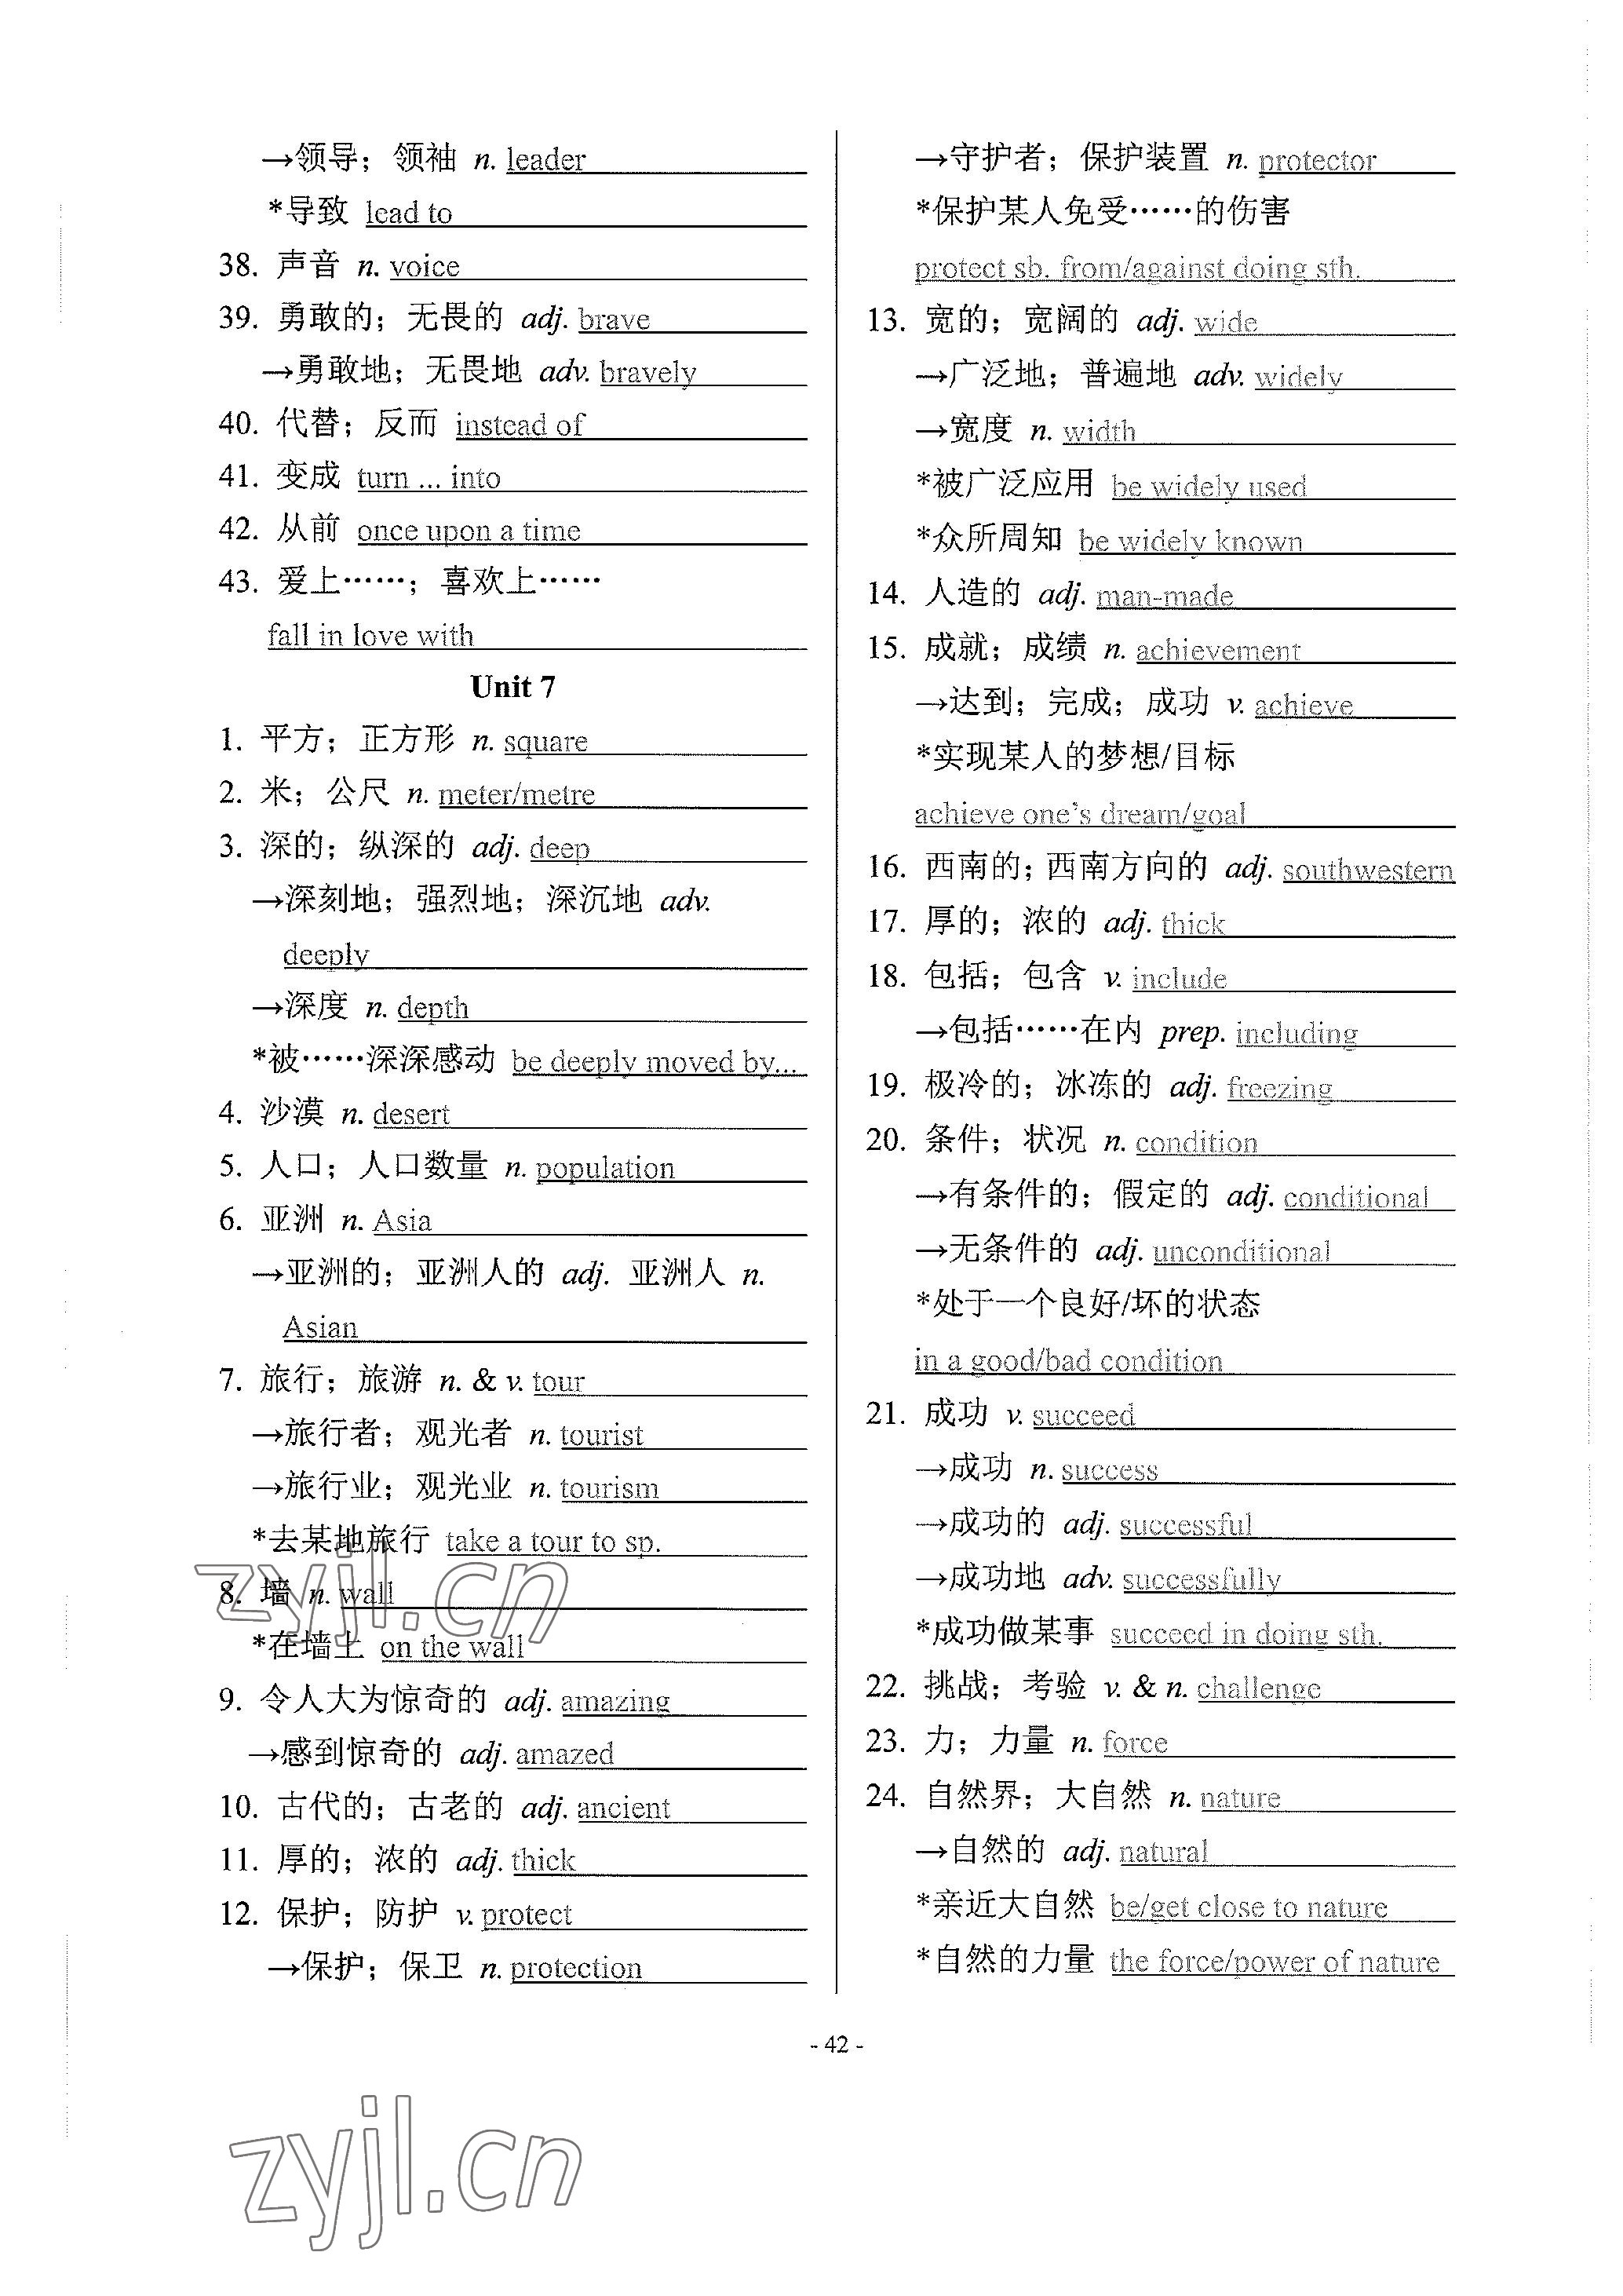 →领导；领袖 n. leader
*导致 lead to
38. 声音 n. voice
39. 勇敢的；无畏的 adj. brave
→勇敢地；无畏地 adv. bravely
40. 代替；反而 instead of
41. 变成 turn ... into
42. 从前 once upon a time
43. 爱上……；喜欢上……
fall in love with
Unit 7
1. 平方；正方形 n. square
2. 米；公尺 n. meter/metre
3. 深的；纵深的 adj. deep
→深刻地；强烈地；深沉地 adv.
deeply
→深度 n. depth
*被……深深感动 be deeply moved by...
4. 沙漠 n. desert
5. 人口；人口数量 n. population
6. 亚洲 n. Asia
→亚洲的；亚洲人的 adj. 亚洲人 n.
Asian
7. 旅行；旅游 n. & v. tour
→旅行者；观光者 n. tourist
→旅行业；观光业 n. tourism
*去某地旅行 take a tour to sp.
8. 墙 n. wall
*在墙上 on the wall
9. 令人大为惊奇的 adj. amazing
→感到惊奇的 adj. amazed
10. 古代的；古老的 adj. ancient
11. 厚的；浓的 adj. thick
12. 保护；防护 v. protect
→保护；保卫 n. protection
→守护者；保护装置 n. protector
*保护某人免受……的伤害
protect sb. from/against doing sth.
13. 宽的；宽阔的 adj. wide
→广泛地；普遍地 adv. widely
→宽度 n. width
*被广泛应用 be widely used
*众所周知 be widely known
14. 人造的 adj. man-made
15. 成就；成绩 n. achievement
→达到；完成；成功 v. achieve
*实现某人的梦想/目标
achieve one's dream/goal
16. 西南的；西南方向的 adj. southwestern
17. 厚的；浓的 adj. thick
18. 包括；包含 v. include
→包括……在内 prep. including
19. 极冷的；冰冻的 adj. freezing
20. 条件；状况 n. condition
→有条件的；假定的 adj. conditional
→无条件的 adj. unconditional
*处于一个良好/坏的状态
in a good/bad condition
21. 成功 v. succeed
→成功 n. success
→成功的 adj. successful
→成功地 adv. successfully
*成功做某事 succeed in doing sth.
22. 挑战；考验 v. & n. challenge
23. 力；力量 n. force
24. 自然界；大自然 n. nature
→自然的 adj. natural
*亲近大自然 be/get close to nature
*自然的力量 the force/power of nature
- 42 -
zyjl.cn
zyjl.cn